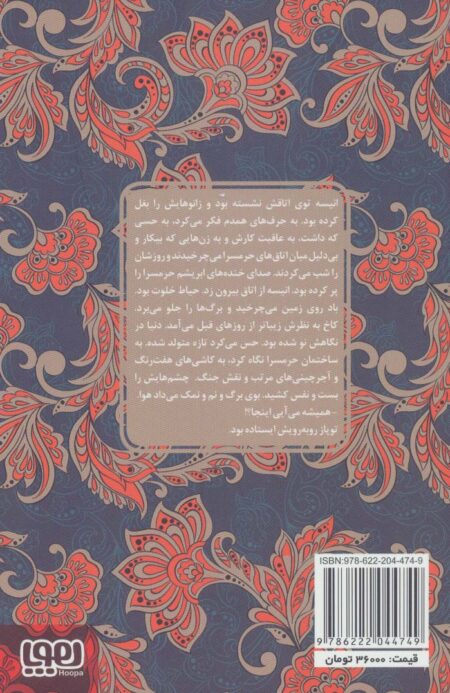 انیسه توی اتاقش نشسته بود و زانوهایش را بغل
کرده بود. به حرف‌های همدم فکر می‌کرد، به حسی
که داشت، به عاقبت کارش و به زن‌هایی که بیکار و
بی‌دلیل میان اتاق‌های حرمسرا می‌چرخیدند و روزشان
را شب می‌کردند. صدای خنده‌های ابریشم حرمسرا را
پر کرده بود. انیسه از اتاق بیرون زد. حیاط خلوت بود.
باد روی زمین می‌چرخید و برگ‌ها را جلو می‌برد.
کاخ به نظرش زیباتر از روزهای قبل می‌آمد. دنیا در
نگاهش نو شده بود. حس می‌کرد تازه متولد شده. به
ساختمان حرمسرا نگاه کرد، به کاشی‌های هفت‌رنگ
و آجرچینی‌های مرتب و نقش جنگ. چشم‌هایش را
بست و نفس کشید. بوی برگ و نم و نمک می‌داد هوا.
- همیشه می‌آیی اینجا؟!
توپاز روبه‌رویش ایستاده بود.
ISBN:978-622-204-474-9
9 786222 044749
قیمت: ۳۶۰۰۰ تومان
هوپا
Hoopa